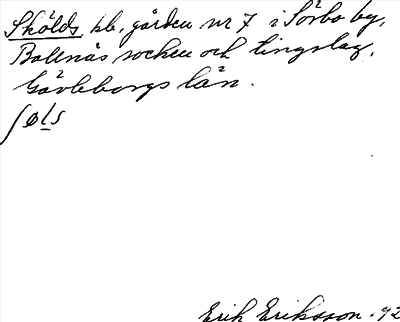 Skölds, kb, gården nr 7 i Sörbo by,
Bollnäs socken och tingslag,
Gävleborgs län.
Erik Eriksson -92